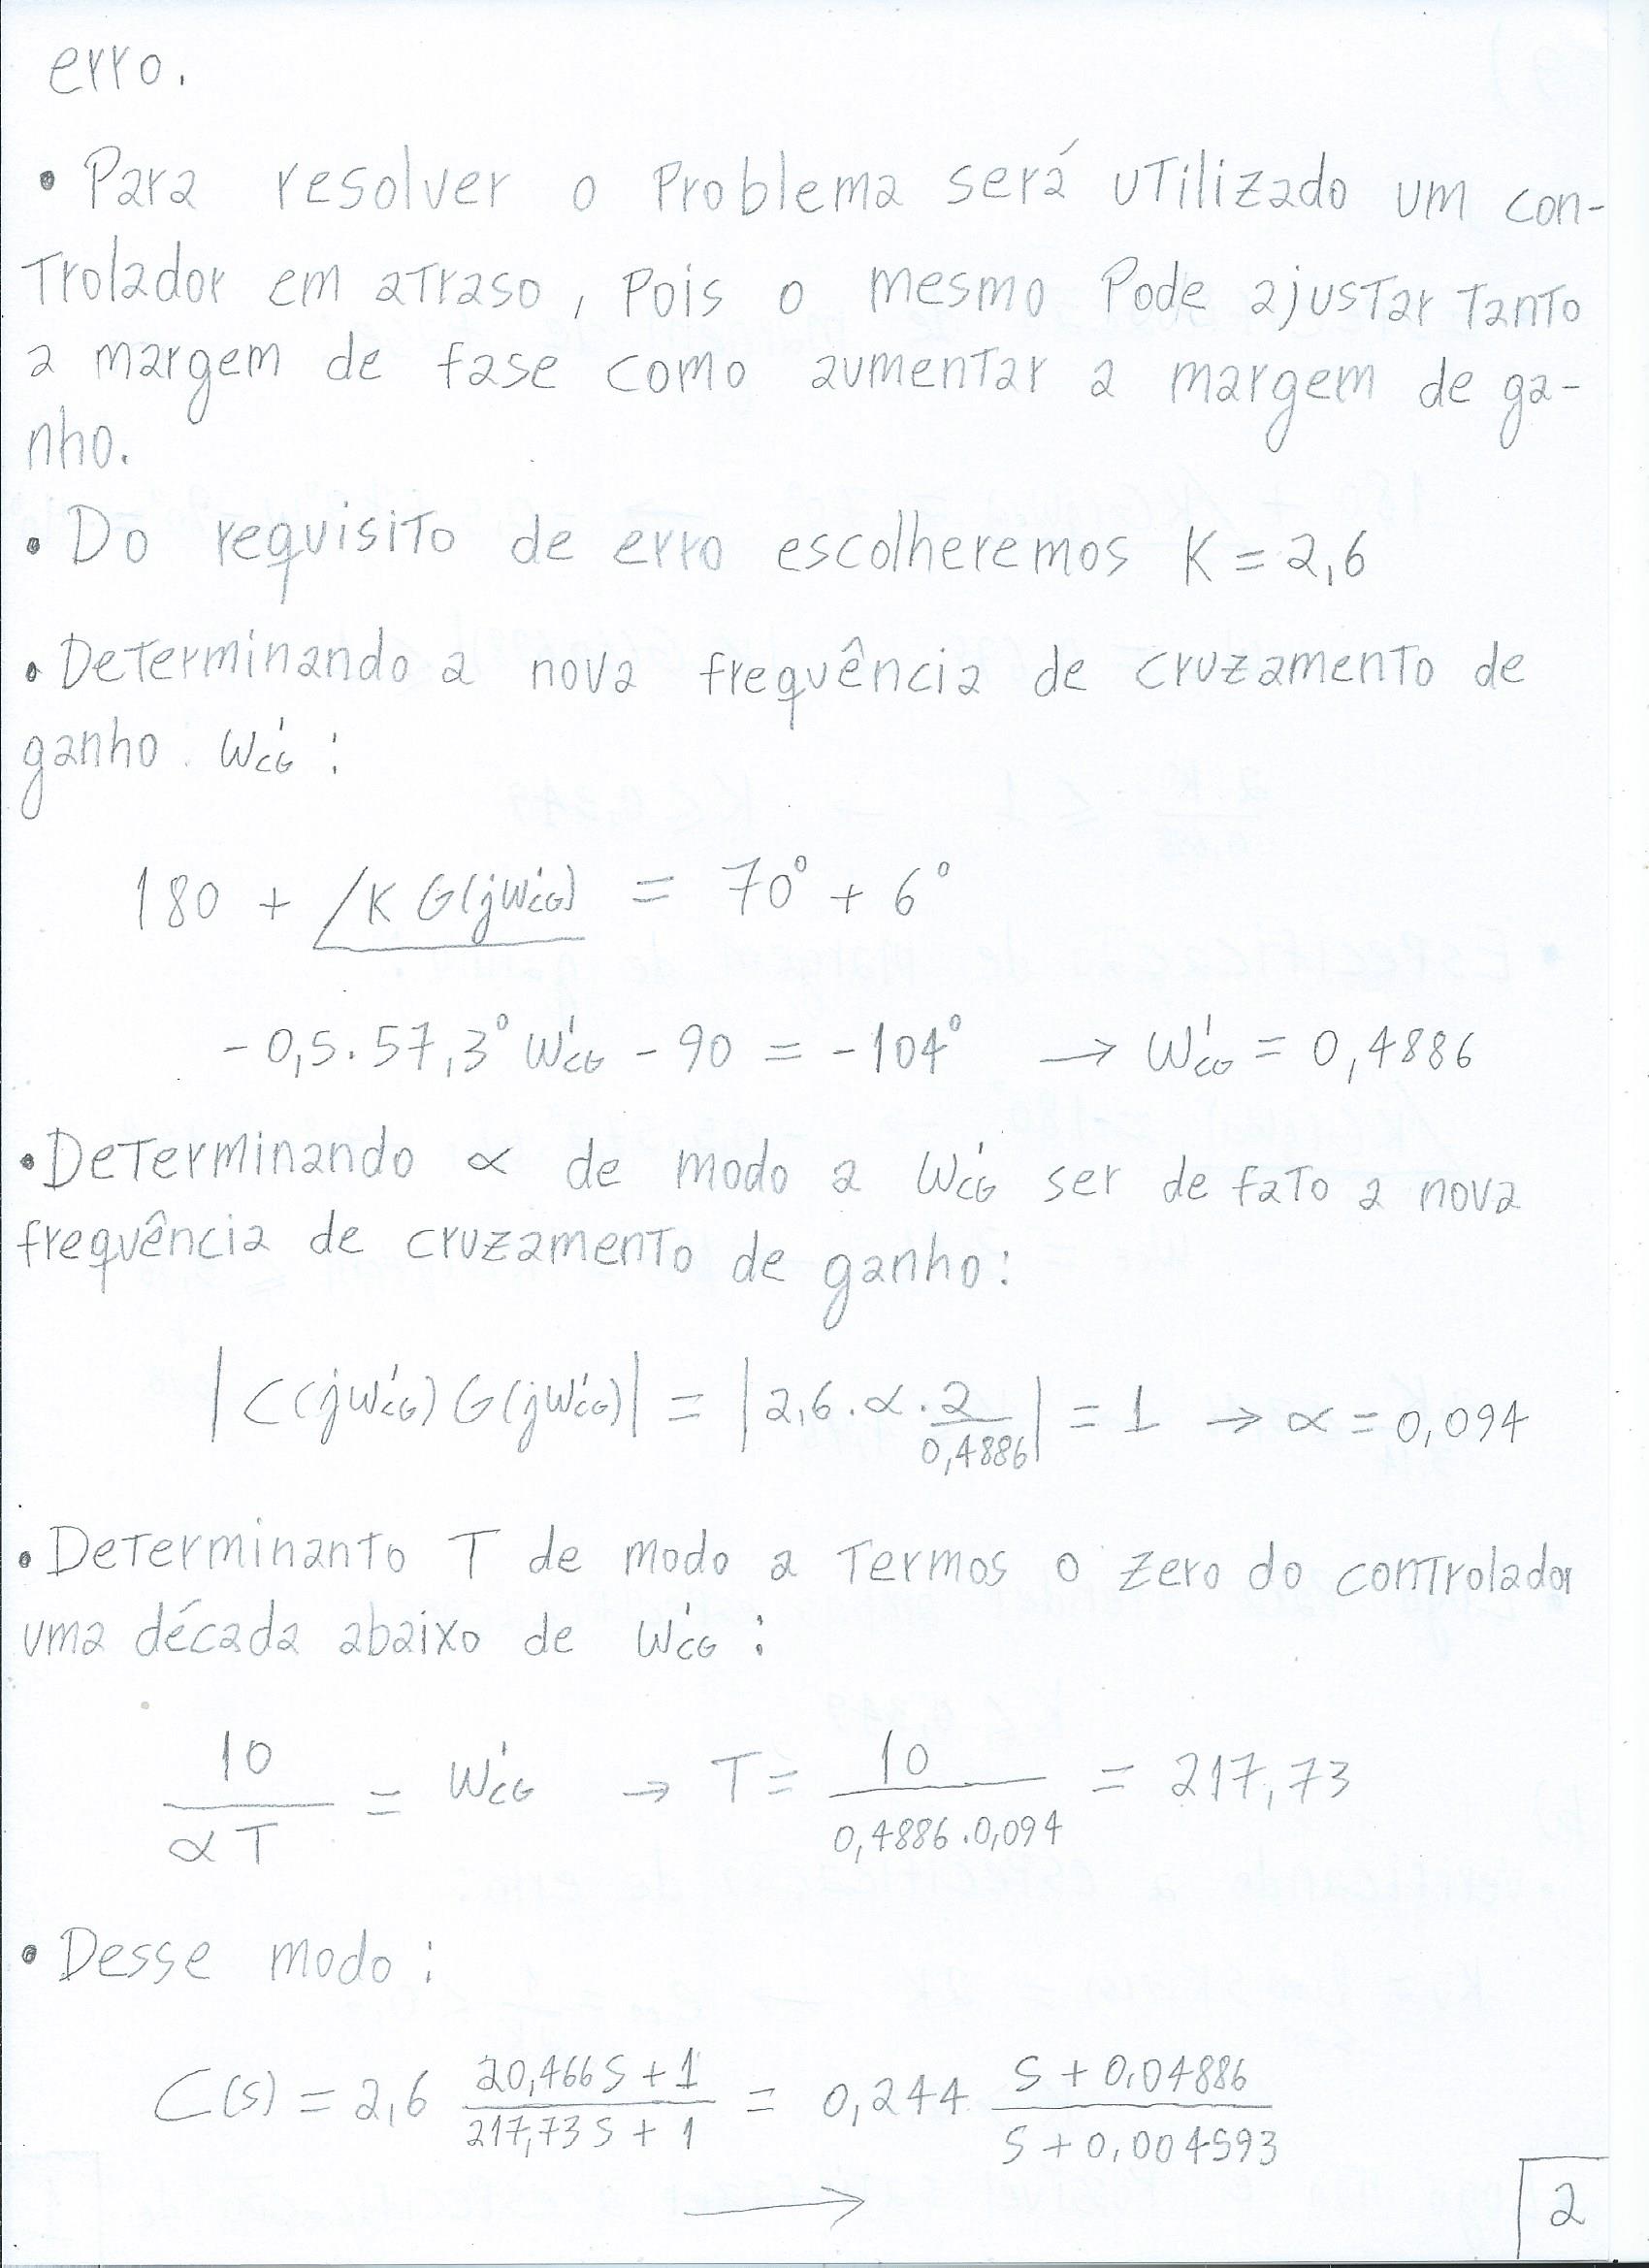 erro.
• Para resolver o problema será utilizado um con-
trolador em atraso, pois o mesmo pode ajustar tanto
a margem de fase como aumentar a margem de ga-
nho.
• Do requisito de erro escolheremos K = 2,6
• Determinando a nova frequência de cruzamento de
ganho. W'CG :
180 + /K G(jW'CG) = 70° + 6°
- 0,5 . 57,3° W'CG - 90 = -104° → W'CG = 0,4886
• Determinando α de modo a W'CG ser de fato a nova
frequência de cruzamento de ganho:
| C(jW'CG) G(jW'CG) | = | 2,6 . α . 2/0,4886 | = 1 → α = 0,094
• Determinanto T de modo a termos o zero do controlador
uma década abaixo de W'CG :
10/αT = W'CG → T = 10/0,4886.0,094 = 217,73
• Desse modo :
C(s) = 2,6 20,466S + 1/217,73S + 1 = 0,244 S + 0,04886/S + 0,004593
→
2